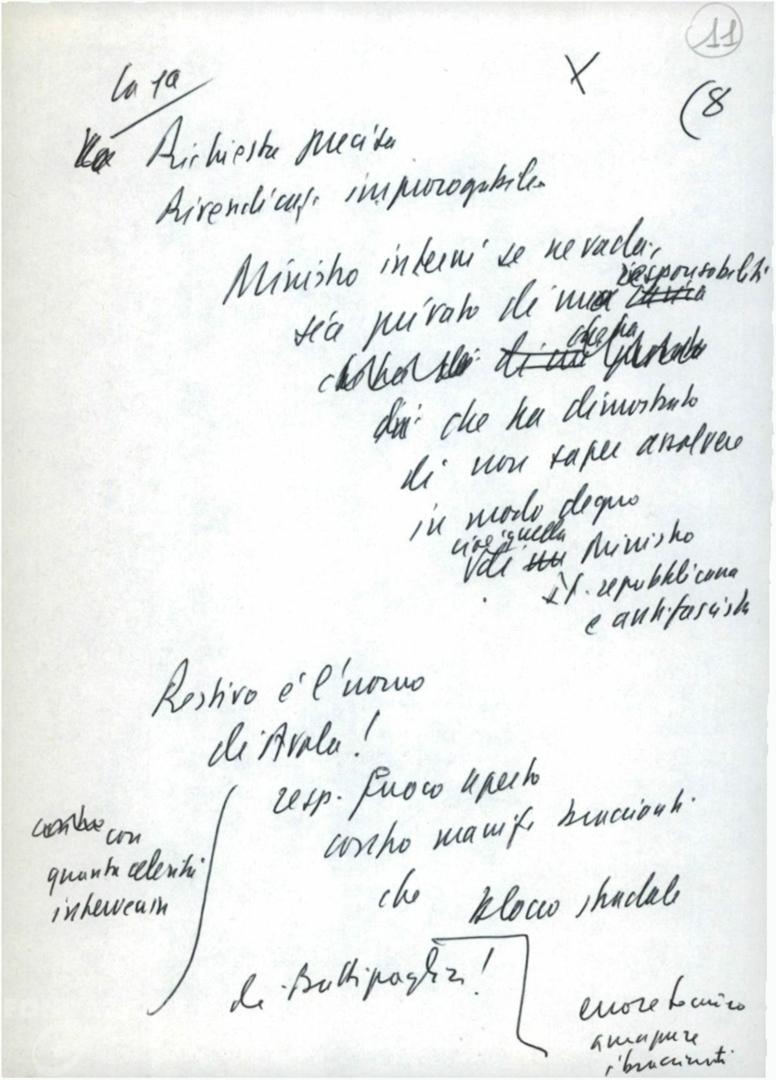 11
(8
X
La 1a
Richiesta precisa
Rivendicaz. improrogabile
Ministro interni se ne vada,
responsabilità
sia privato di una
che ha
che ha dimostrato
di non saper assolvere
in modo degno
cioè quella
di Ministro
It. repubblicana
e antifascista
Restivo é l'uomo
di Avola!
resp. fuoco aperto
contro manif. braccianti
che blocco stradale
con
quanta celerità
intervenire
di Battipaglia!
errore tecnico
ammazzare
i braccianti